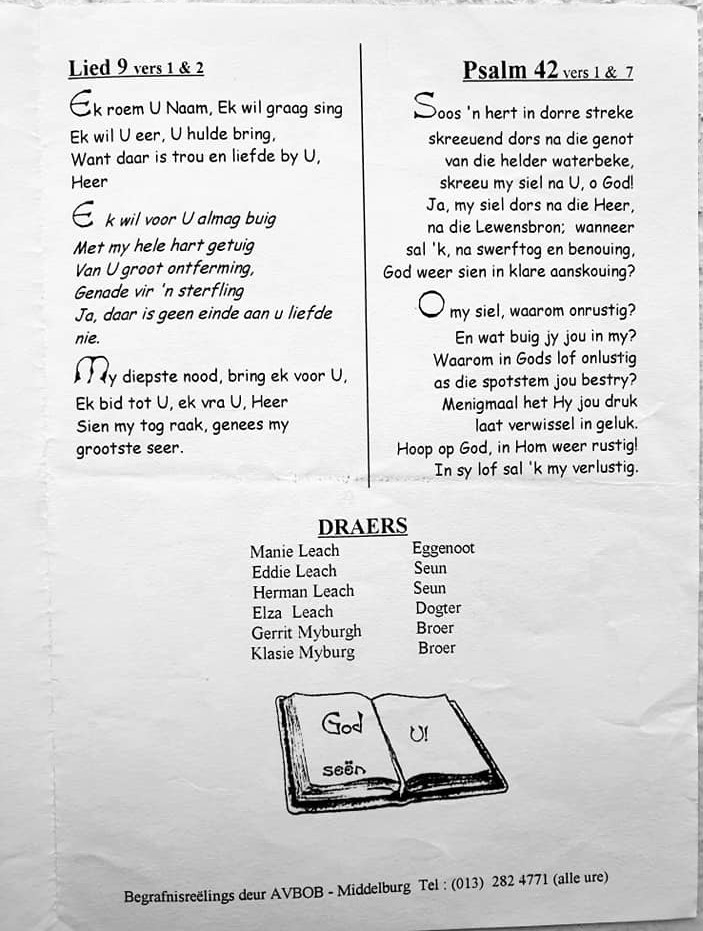 Lied 9 vers 1 & 2
Ek roem U Naam, Ek wil graag sing
Ek wil U eer, U hulde bring,
Want daar is trou en liefde by U,
Heer
Ek wil voor U almag buig
Met my hele hart getuig
Van U groot ontferming,
Genade vir 'n sterfling
Ja, daar is geen einde aan u liefde
nie.
My diepste nood, bring ek voor U,
Ek bid tot U, ek vra U, Heer
Sien my tog raak, genees my
grootste seer.
Psalm 42 vers 1 & 7
Soos 'n hert in dorre streke
skreeuend dors na die genot
van die helder waterbeke,
skreeu my siel na U, o God!
Ja, my siel dors na die Heer,
na die Lewensbron; wanneer
sal 'k, na swerftog en benouing,
God weer sien in klare aanskouing?
O my siel, waarom onrustig?
En wat buig jy jou in my?
Waarom in Gods lof onlustig
as die spotstem jou bestry?
Menigmaal het Hy jou druk
laat verwissel in geluk.
Hoop op God, in Hom weer rustig!
In sy lof sal 'k my verlustig.
DRAERS
Manie Leach Eggenoot
Eddie Leach Seun
Herman Leach Seun
Elza Leach Dogter
Gerrit Myburgh Broer
Klasie Myburg Broer
God
seën
U!
Begrafnisreëlings deur AVBOB - Middelburg Tel : (013) 282 4771 (alle ure)